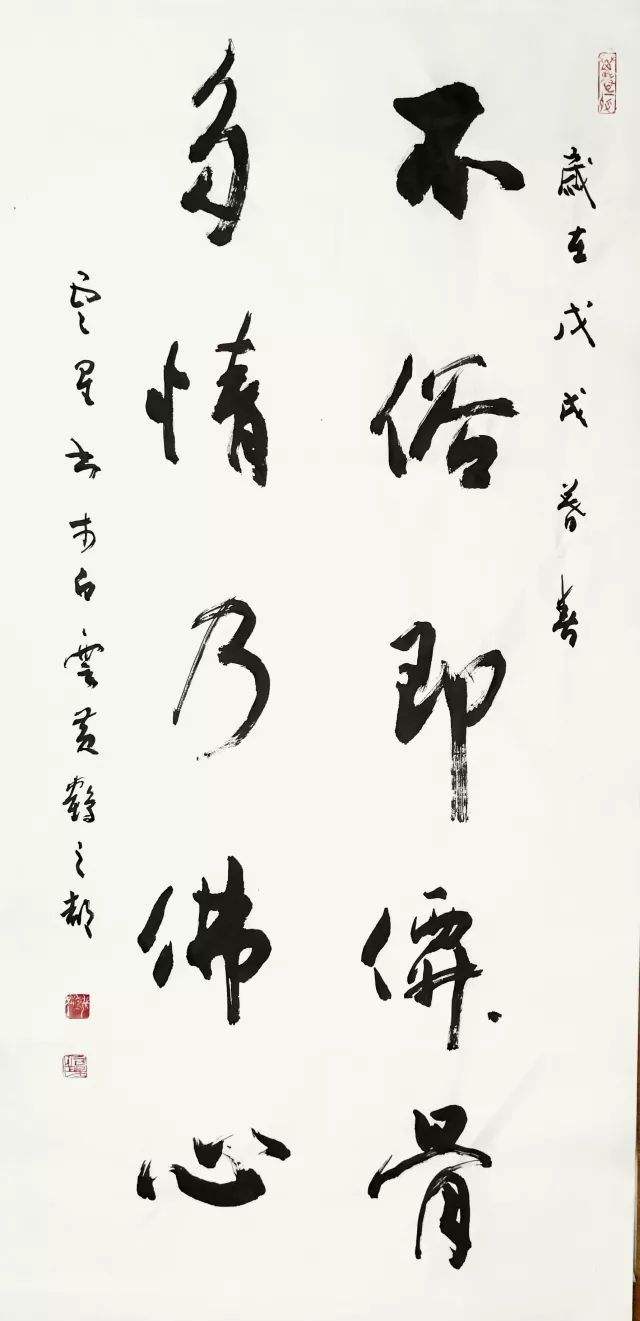 歲在戊戌暮春
不俗即僊骨
多情乃佛心
雲星书於白雲黄鶴之都